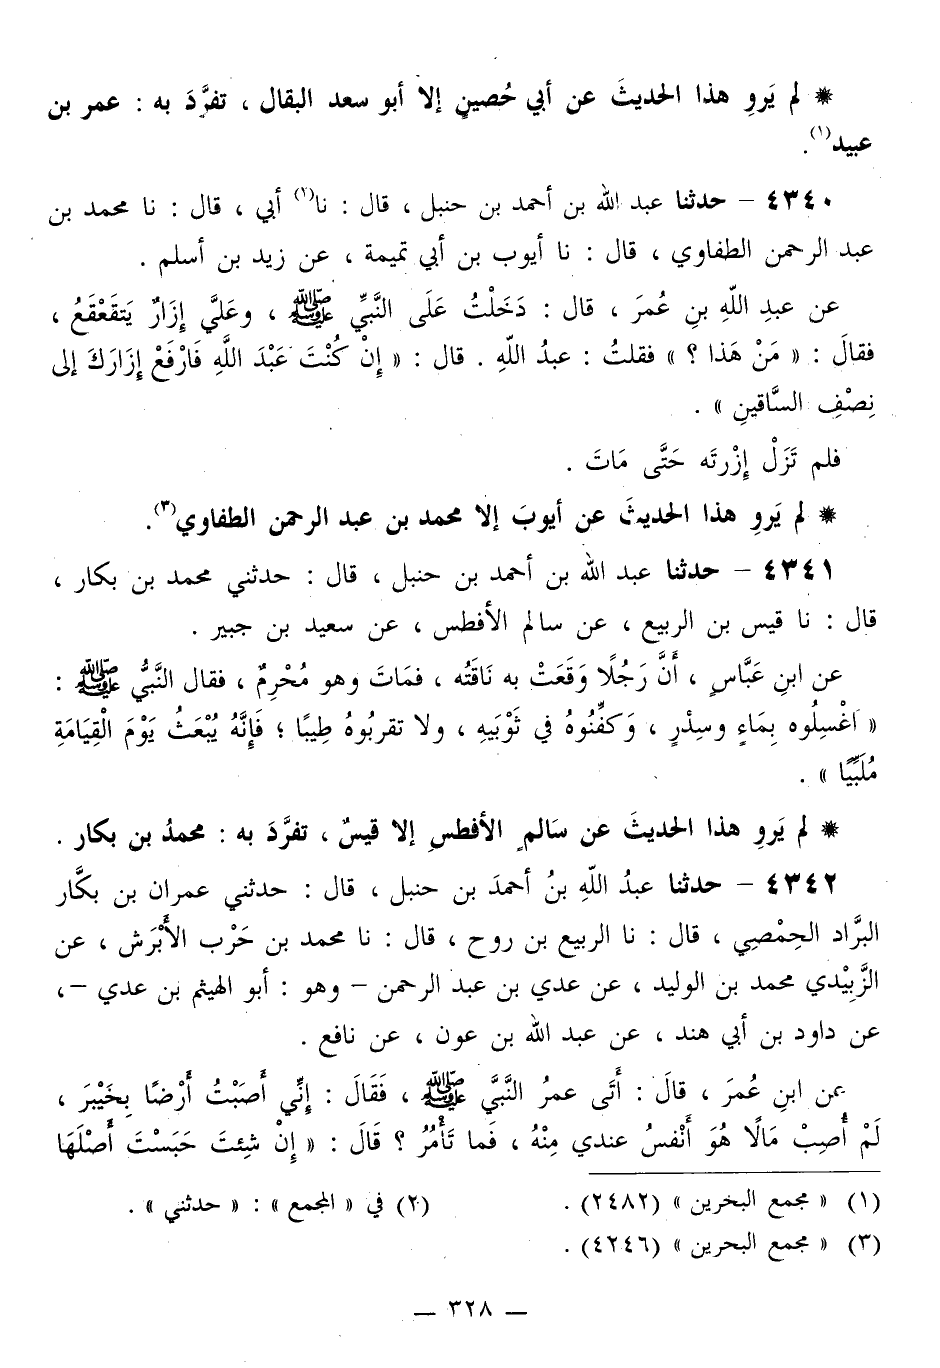 * لم يَروِ هذا الحديثَ عن أبي حُصينٍ إلا أبو سعد البقال ، تفرَّدَ به : عمر بن
عبيد(١).
٤٣٤٠ – حدثنا عبد الله بن أحمد بن حنبل ، قال : نا(٢) أبي ، قال : نا محمد بن
عبد الرحمن الطفاوي ، قال : نا أيوب بن أبي تميمة ، عن زيد بن أسلم .
عن عبدِ اللَّهِ بنِ عُمرَ ، قال : دَخَلْتُ عَلَى النَّبيِّ ﷺ ، وعَليَّ إِزَارٌ يَتقَعْقَعُ ،
فقالَ : « مَنْ هَذا ؟ » فقلتُ : عبدُ اللَّهِ . قال : « إِنْ كُنْتَ عَبْدَ اللَّهِ فَارْفَعْ إِزَارَكَ إلى
نِصْفِ السَّاقينِ » .
فلم تَزَلْ إِزْرتَه حَتَّى مَاتَ .
* لم يَروِ هذا الحديثَ عن أيوبَ إلا محمد بن عبد الرحمن الطفاوي(٣).
٤٣٤١ – حدثنا عبد الله بن أحمد بن حنبل ، قال : حدثني محمد بن بكار ،
قال : نا قيس بن الربيع ، عن سالم الأفطس ، عن سعيد بن جبير .
عن ابنِ عَبَّاسٍ ، أَنَّ رَجُلًا وَقَعَتْ به نَاقَتُه ، فمَاتَ وهو مُحْرِمٌ ، فقال النَّبيُّ ﷺ :
« اَغْسِلُوه بِمَاءٍ وسِدْرٍ ، وَكفِّنُوهُ في ثَوْبَيهِ ، ولا تقربُوهُ طِيبًا ؛ فَإِنَّهُ يُبْعَثُ يَوْمَ الْقِيَامَةِ
مُلَبِّيًا » .
* لم يَروِ هذا الحديثَ عن سَالمٍ الأفطسِ إلا قيسٌ ، تفرَّدَ به : محمدُ بن بكار .
٤٣٤٢ – حدثنا عبدُ اللَّهِ بنُ أحمدَ بن حنبل ، قال : حدثني عمران بن بكَّار
البرَّاد الحِمْصِي ، قال : نا الربيع بن روح ، قال : نا محمد بن حَرْب الأَبْرَش ، عن
الزَّبِيْدي محمد بن الوليد ، عن عدي بن عبد الرحمن – وهو : أبو الهيثم بن عدي –،
عن داود بن أبي هند ، عن عبد الله بن عون ، عن نافع .
عن ابنِ عُمرَ ، قالَ : أَتَى عمرُ النَّبيَّ ﷺ ، فَقَالَ : إِنِّي أَصَبْتُ أَرْضًا بِخَيْبَرَ ،
لَمْ أُصِبْ مَالًا هُوَ أَنْفسُ عندي مِنْهُ ، فَما تَأْمُرُ ؟ قَالَ : « إِنْ شِئتَ حَبَسْتَ أَصْلَهَا
(١) « مجمع البخرين » (٢٤٨٢) . (٢) في « المجمع » : « حدثني » .
(٣) « مجمع البحرين » (٤٢٤٦) .
— ٣٢٨ —